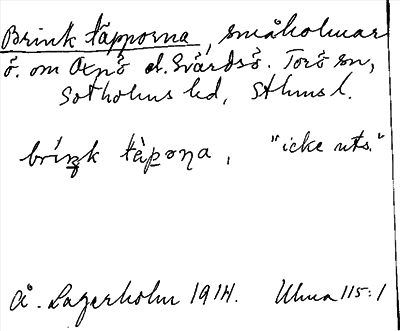 Brink täpporna, småholmar
ö. om Oxnö el. Svärdsö. Torö sn,
Sotholms hd, Sthms l.
brıŋk tàpoɳa, "icke uts."
A. Lagerholm 1914. Uhma 115:1